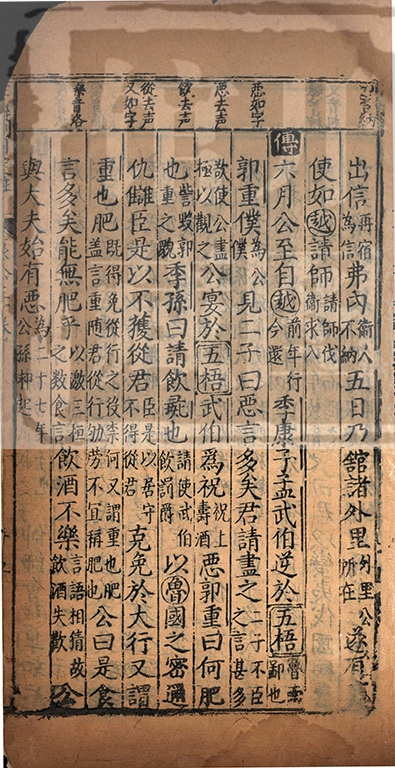 内音納
惡如字
惡去声
飲去声
從去声
又如字
樂音洛
出信再宿為信弗内衛人不納五日乃館諸外里外里公所在遂有
使如越請師請師伐衛求入
傳六月公至自越前年行今還季康子孟武伯逆於五梧魯南鄙也
郭重僕為公僕見二子曰惡言多矣君請盡之二子不臣之言甚多
欲使公盡極以觀之公宴於五梧武伯為祝祝上壽酒惡郭重曰何肥
也訾毀郭重之貌季孫曰請飲彘也請使武伯飲罰爵以魯國之密邇
仇讎臣是以不獲從君臣是以居守不得從君克免於大行又謂
重也肥既得免從行之後柰何又謂重也肥蓋言重兩君從行劬勞不宜稱肥也公曰是食
言多矣能無肥乎以激三桓之數食言飲酒不樂言語相猜故飲酒失歡公
與大夫始有惡為二十七年公孫邾起